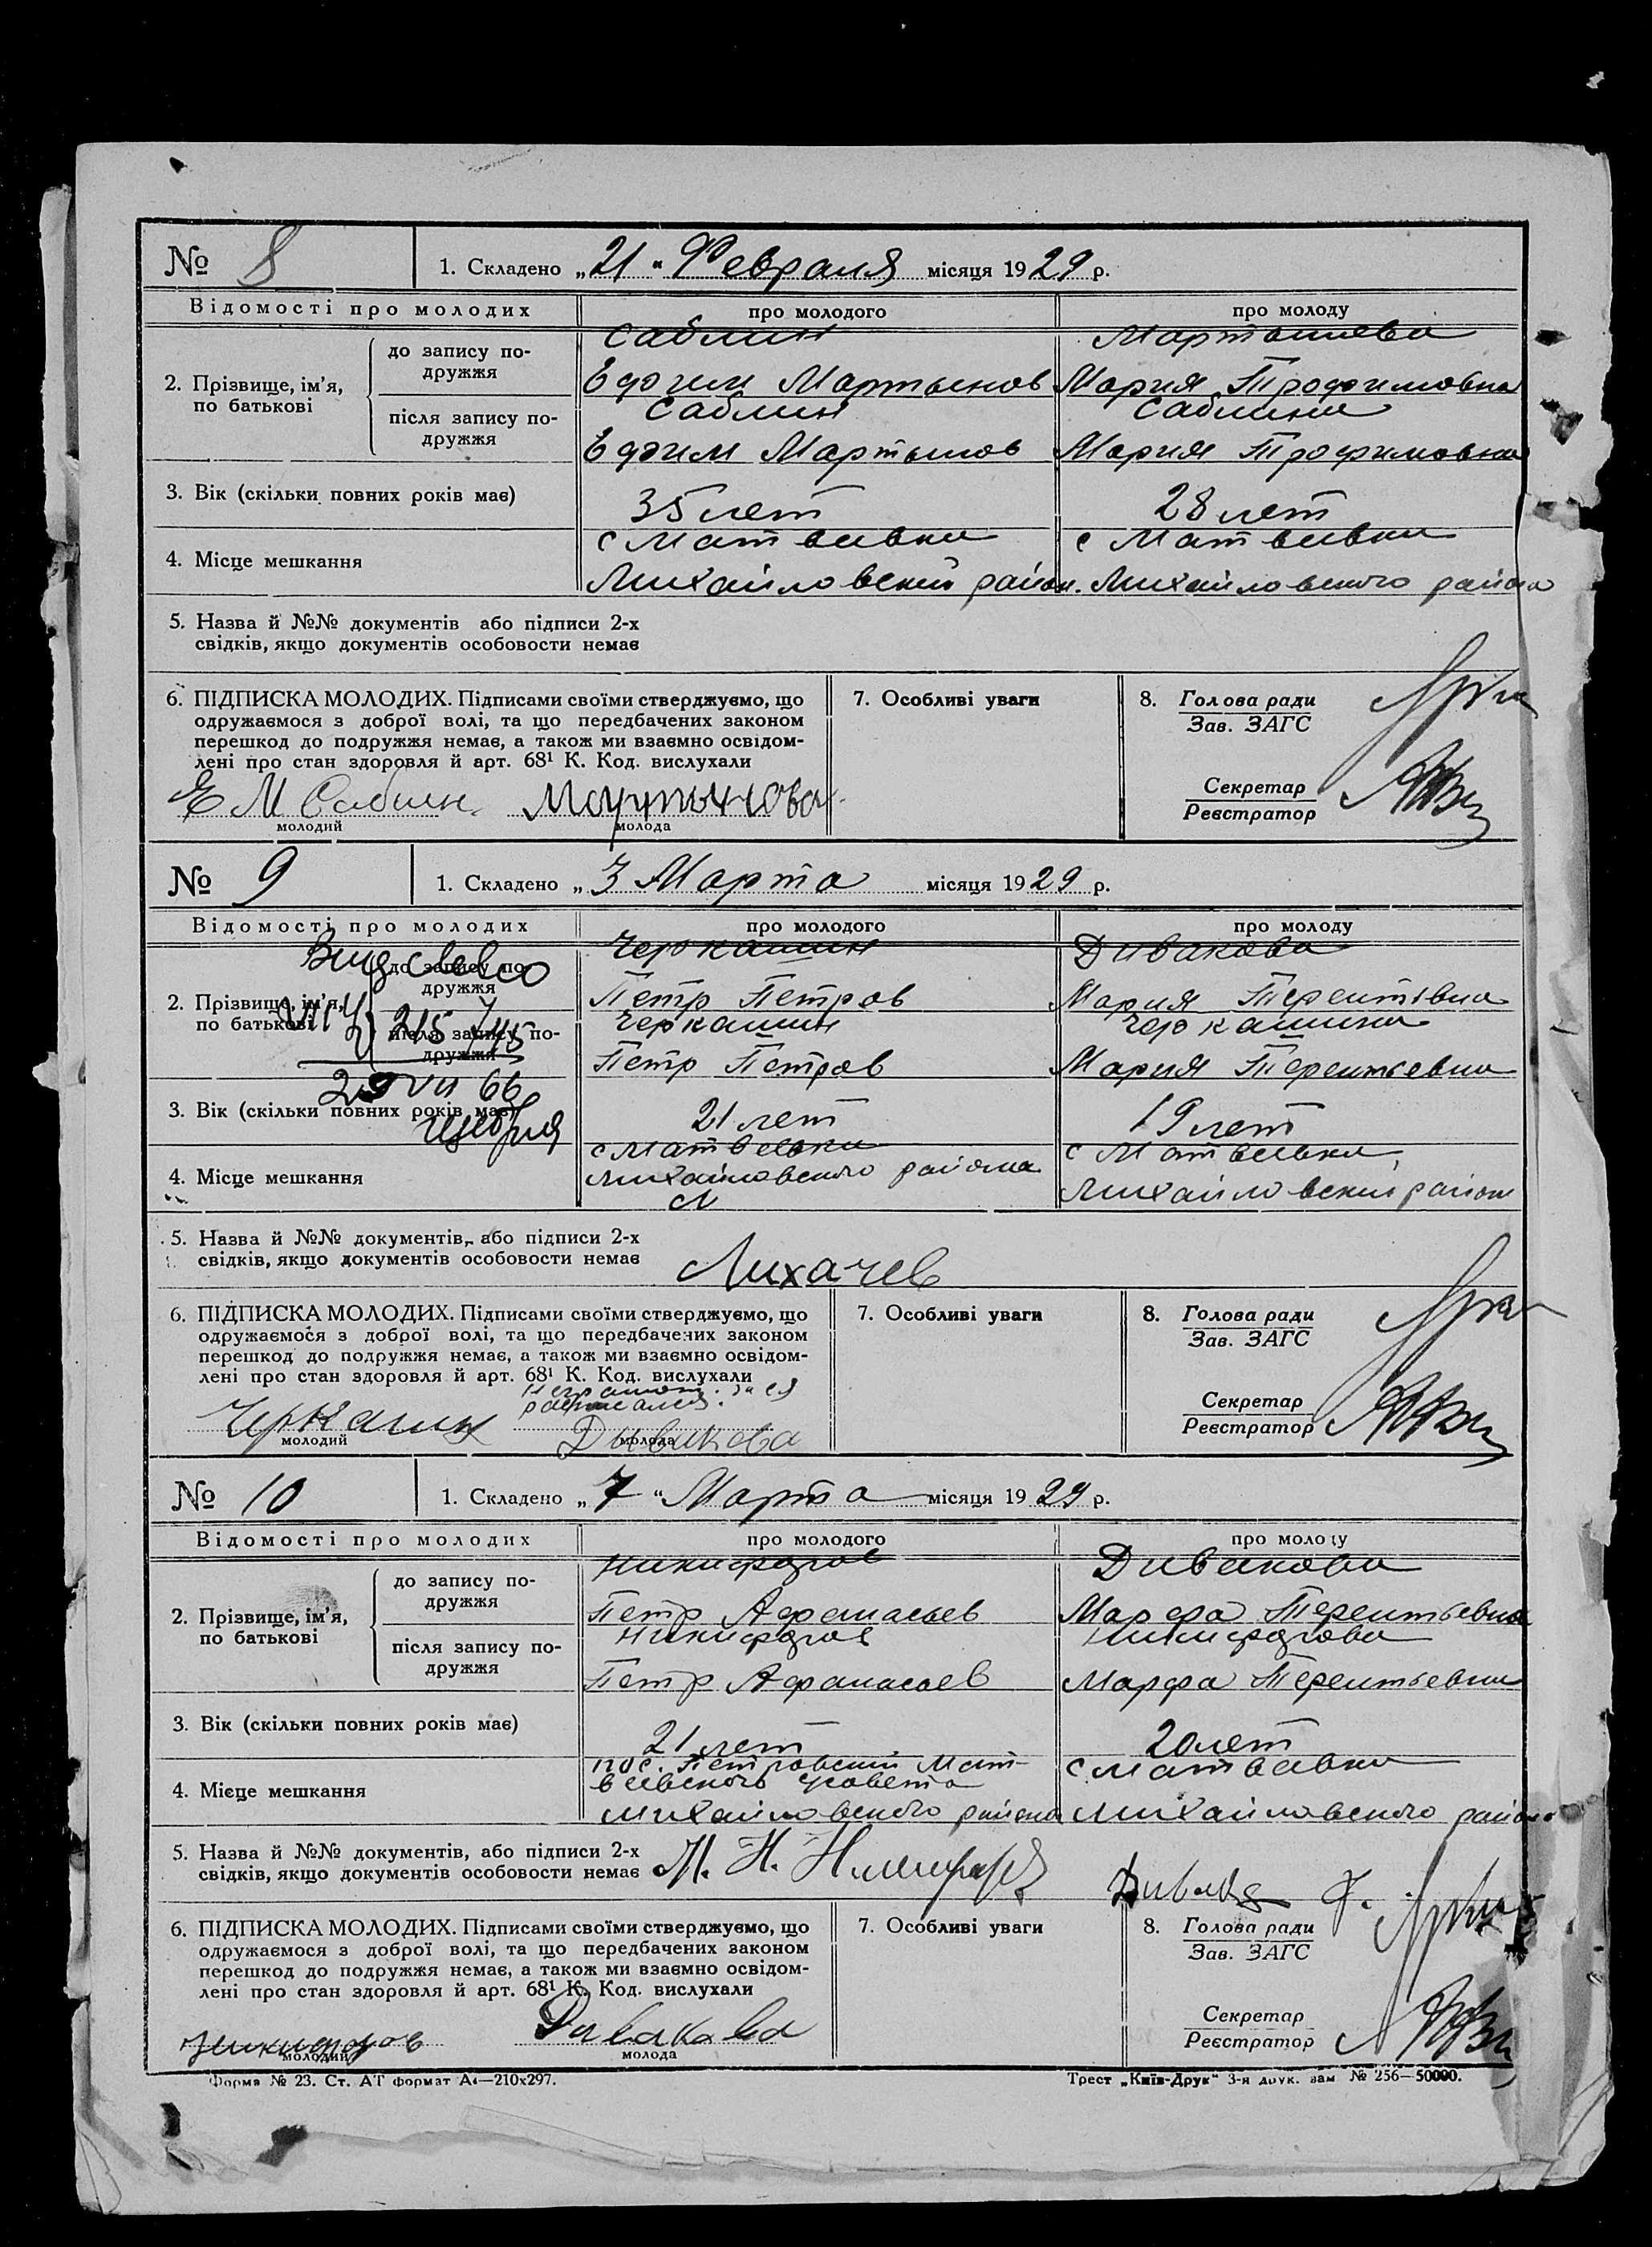 № 8
1. Складено „21“ Февраля місяця 1929 р.
Відомості про молодих про молодого про молоду
Саблин Мартынова
2. Прізвище, ім’я, по батькові
до запису подружжя
Ефим Мартынов Мария Трофимовна
Саблин Саблина
після запису по-
дружжя
Ефим Мартынов Мария Трофимовна
3. Вік (скільки повних років має) 35 лет 28 лет
с Матвеевки с Матвеевки
4. Місце мешкання
Михайловский район. Михайловского района
5. Назва й №№ документів або підписи 2-х
свідків, якщо документів особовости немає
6. ПІДПИСКА МОЛОДИХ. Підписами своїми стверджуємо, що
одружаємося з доброї волі, та що передбачених законом
перешкод до подружжя немає, а також ми взаємно освідом-
лені про стан здоровля й арт. 68¹ К. Код. вислухали
Е М Саблин. Мартынова
молодий молода
7. Особливі уваги
8. Голова ради
Зав. ЗАГС
Секретар
Реєстратор
№ 9
1. Складено „3 Марта місяця 1929 р.
Відомості про молодих про молодого про молоду
Черкашин Дивакова
2. Прізвище, ім’я,
по батькові
до запису по-
дружжя
Петр Петров Мария Терентівна
Черкашин Черкашина
після запису по-
дружжя
Петр Петров Мария Терентьевна
29 VII 66
3. Вік (скільки повних років має) 21 лет 19 лет
с Матвеевки с Матвеевки
4. Місце мешкання
Михайловского района Михайловский район
5. Назва й №№ документів, або підписи 2-х
свідків, якщо документів особовости немає
Лихачев
6. ПІДПИСКА МОЛОДИХ. Підписами своїми стверджуємо, що
одружаємося з доброї волі, та що передбачених законом
перешкод до подружжя немає, а також ми взаємно освідом-
лені про стан здоровля й арт. 68¹ К. Код. вислухали
Черкашин Дивакова
молодий молода
7. Особливі уваги
8. Голова ради
Зав. ЗАГС
Секретар
Реєстратор
№ 10
1. Складено „7“ Марта місяця 1929 р.
Відомості про молодих про молодого про молоду
Никифоров Дивакова
2. Прізвище, ім’я,
по батькові
до запису по-
дружжя
Петр Афанасьев Марфа Терентьевна
Никифоров Никифорова
після запису по-
дружжя
Петр Афанасьев Марфа Терентьевна
3. Вік (скільки повних років має) 21 лет 20 лет
4. Місце мешкання
пос. Петровский Мат-
веевского с/совета
Михайловского района
с Матвеевки
Михайловского района
5. Назва й №№ документів, або підписи 2-х
свідків, якщо документів особовости немає
6. ПІДПИСКА МОЛОДИХ. Підписами своїми стверджуємо, що
одружаємося з доброї волі, та що передбачених законом
перешкод до подружжя немає, а також ми взаємно освідом-
лені про стан здоровля й арт. 68¹ К. Код. вислухали
Никифоров Дивакова
молодий молода
7. Особливі уваги
8. Голова ради
Зав. ЗАГС
Секретар
Реєстратор
Форма № 23. Ст. АТ формат А4—210х297.
Трест „Київ-Друк“ 3-я друк. зам № 256—50000.